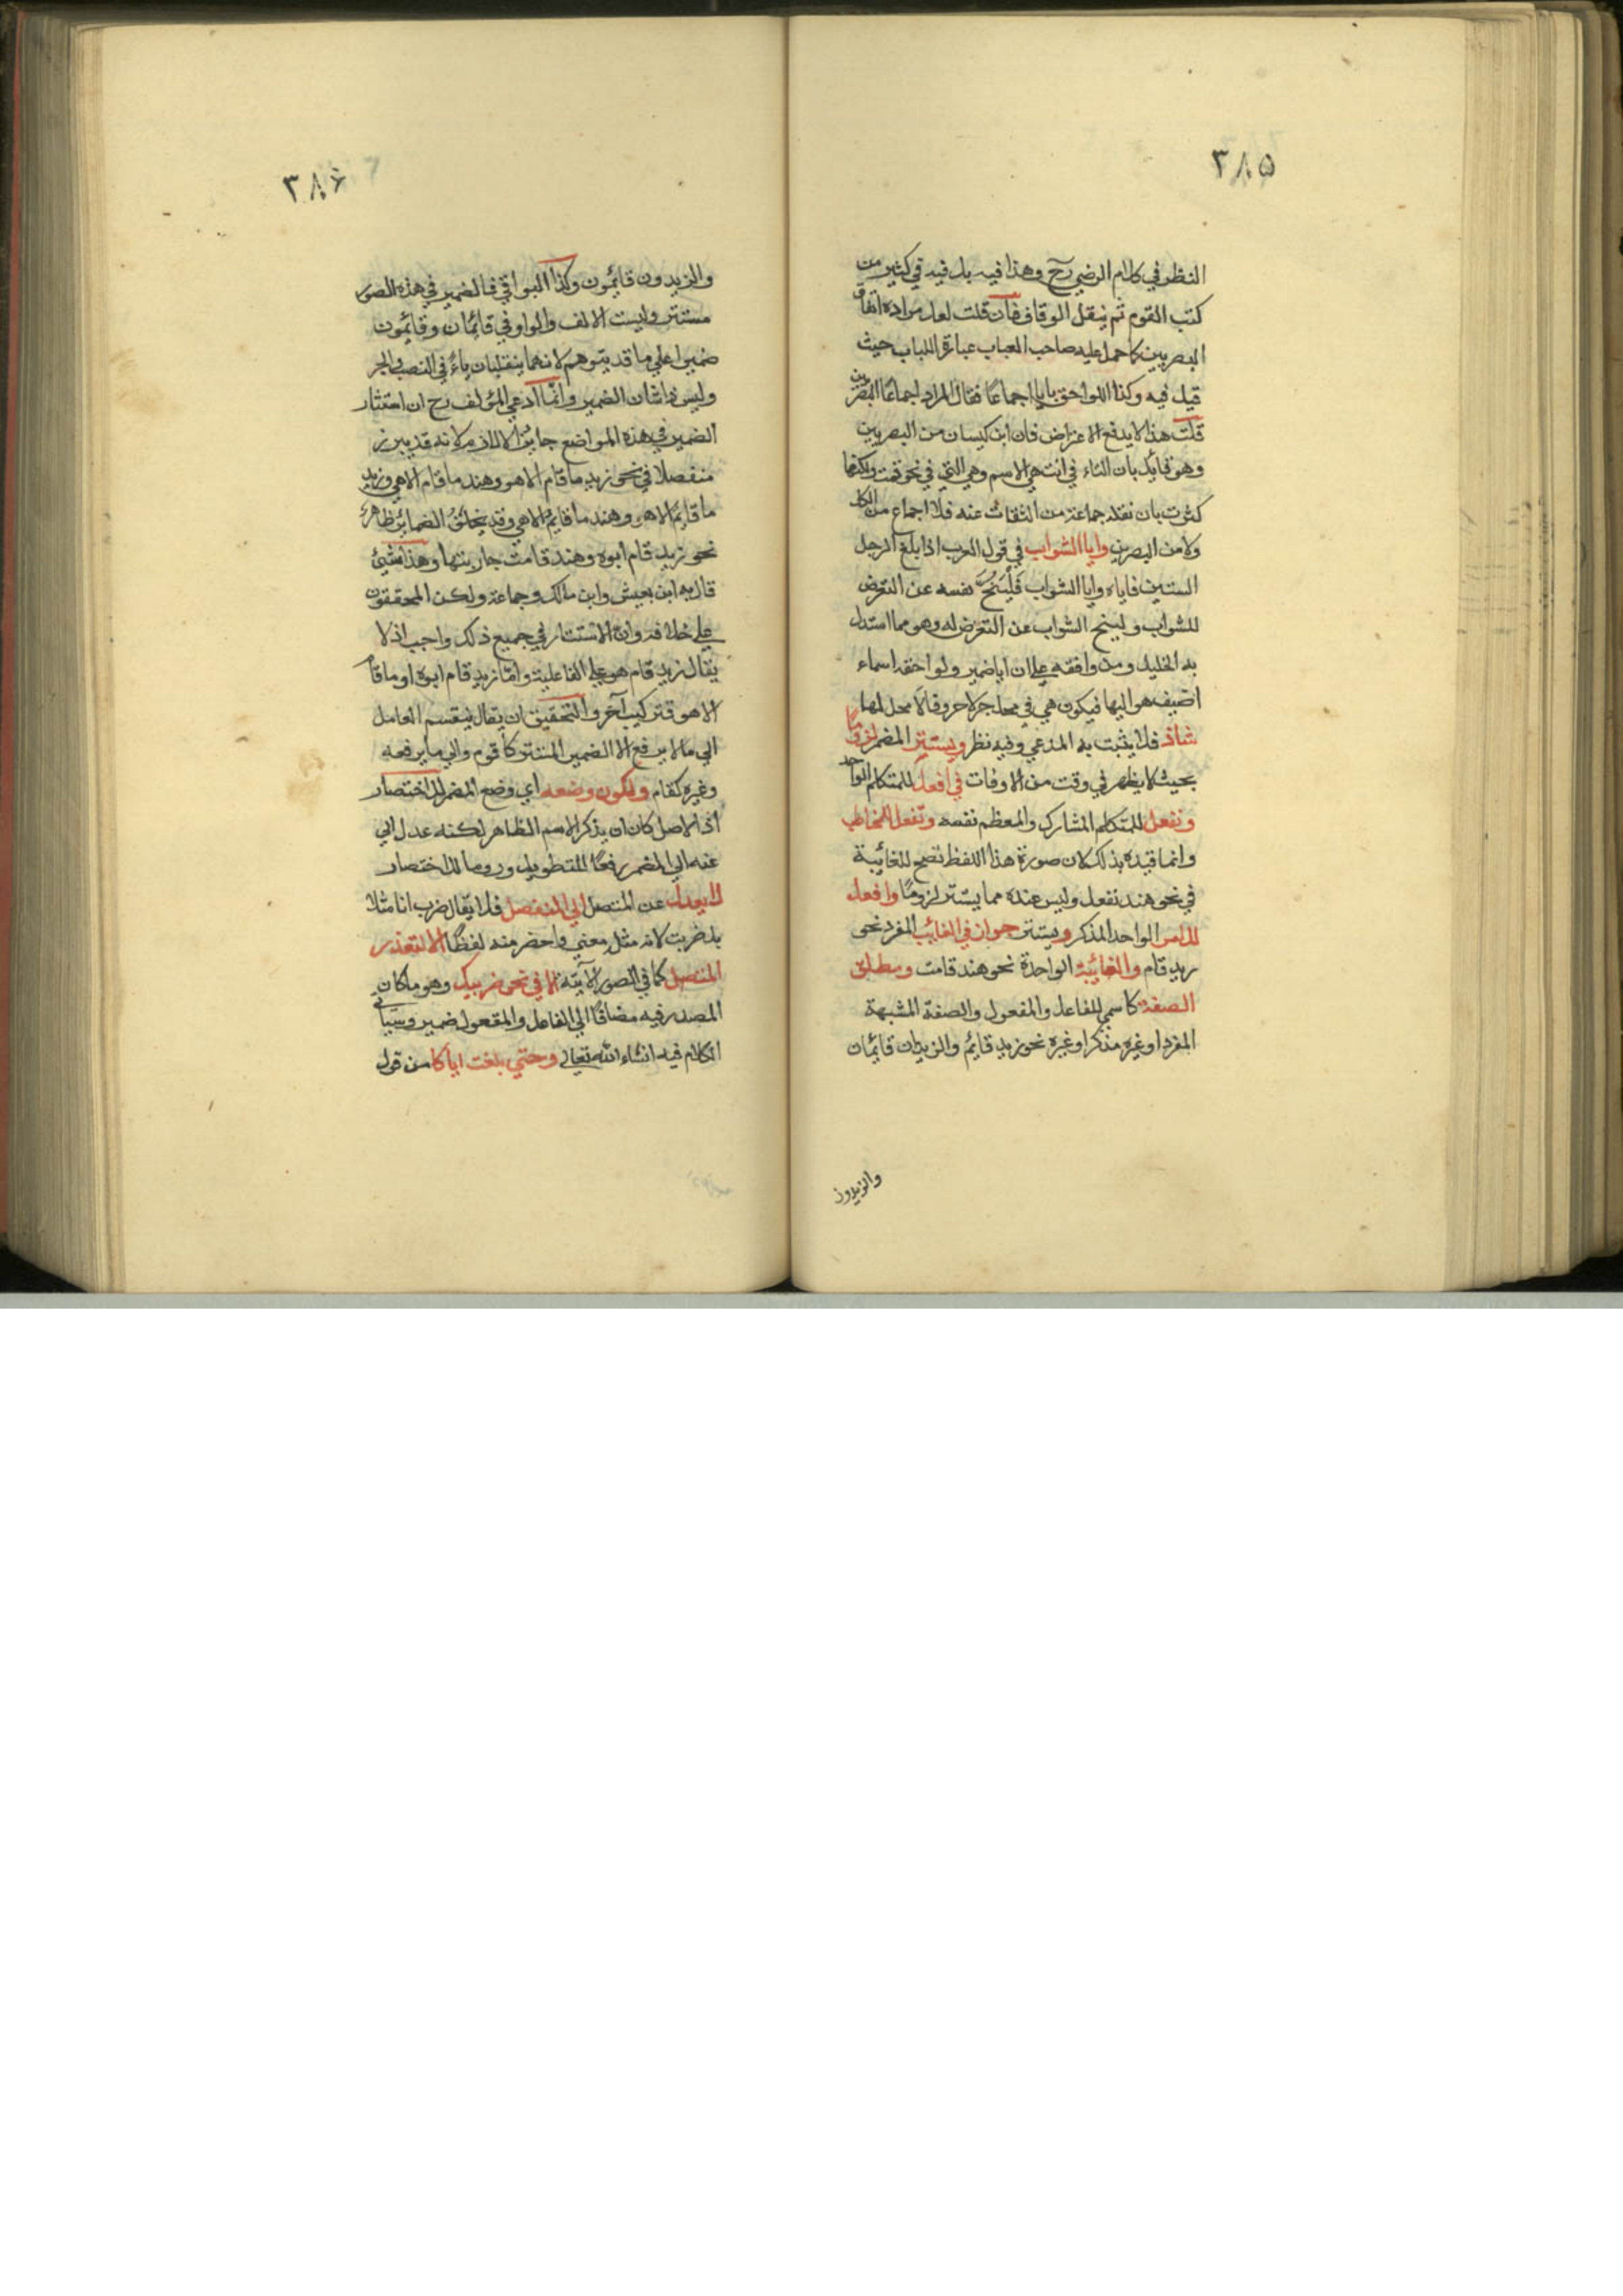 ٣٨٥
النظر في كلام الرضي رح وهذا فيه بل فيه في كثير من
كتب القوم ثم ينقل الوقاف فان قلت لعل مراده اتفاق
البصريين كما حمل عليه صاحب العباب عبارة اللباب حيث
قيل فيه وكذا اللواحق بايا اجماعا فقال المراد اجماعا البصريين
قلت هذا لا يدفع الاعتراض فان ابن كيسان من البصريين
وهو قايل بان التاء في انت هي الاسم وهي التي في نحو قمت ولكنها
كثرت بان نقله جماعة من الثقات عنه فلا اجماع من الكل
ولا من البصريين وايا الشواب في قول العرب اذا بلغ الرجل
الستين فاياه وايا الشواب فليُنحّ نفسه عن التعرض
للشواب ولينح الشواب عن التعرض له وهو مما استدل
به الخليل ومن وافقه على ان ايا ضمير ولواحقه اسماء
اضيف هو اليها فيكون هي في محل جر لا حروفا لا محل لها
شاذ فلا يثبت به المدعي وفيه نظر ويستتر المضمر لزوما
بحيث لا يظهر في وقت من الاوقات في افعل للمتكلم الواحد
ونفعل للمتكلم المشارك والمعظم نفسه وتفعل للمخاطب
وانما قيده بذلك لان صورة هذا اللفظ تصح للغائبة
في نحو هند تفعل وليس عنده مما يستتر لزوما وافعل
للامر الواحد المذكر ويستتر جوازا في الغائب المفرد نحو
زيد قام والغائبة الواحدة نحو هند قامت ومطلق
الصفة كاسمي للفاعل والمفعول والصفة المشبهة
المفرد او غيره مذكرا وغيره نحو زيد قائم والزيدان قائمان
والزيدون
٣٨۶
والزيدون قائمون وكذا البواقي فالضمير في هذه الصور
مستتر وليست الالف والواو في قائمان وقائمون
ضميرا على ما قد يتوهم لانهما ينقلبان ياء في النصب والجر
وليس ذا شان الضمير وانما ادعي المؤلف رح ان استتار
الضمير في هذه المواضع جايز لا لازم لانه قد يبرز
منفصلا في نحو زيد ما قام الا هو وهند ما قام الا هي وزيد
ما قايم الا هو وهند ما قايم الا هي وقد يخلف الضماير ظاهر
نحو زيد قام ابوه وهند قامت جاريتها وهذا شئ
قال به ابن يعيش وابن مالك وجماعة ولكن المحققون
على خلافه وان الاستتار في جميع ذلك واجب اذ لا
يقال زيد قام هو على الفاعلية واما زيد قام ابوه او ما قام
الا هو فتركيب آخر والتحقيق ان يقال ينقسم العامل
الي ما لا يرفع الا الضمير المستتر كاقوم والي ما يرفعه
وغيره كقام ولكون وضعه اي وضع المضمر للاختصار
اذ الاصل كان ان يذكر الاسم الظاهر لكنه عدل الي
عنه الي المضمر رفعا للتطويل وروما للاختصار
لا يعدل عن المتصل الي المنفصل فلا يقال ضرب انا مثلا
بل ضربت لانه مثل معني واخصر منه لفظا الا لتعذر
المتصل كما في الصور الآتية الا في نحو ضربيك وهو ما كان
المصدر فيه مضافا الي الفاعل والمفعول ضمير وسياتي
الكلام فيه انشاء الله تعالي وحتي بلغت اياكا من قول